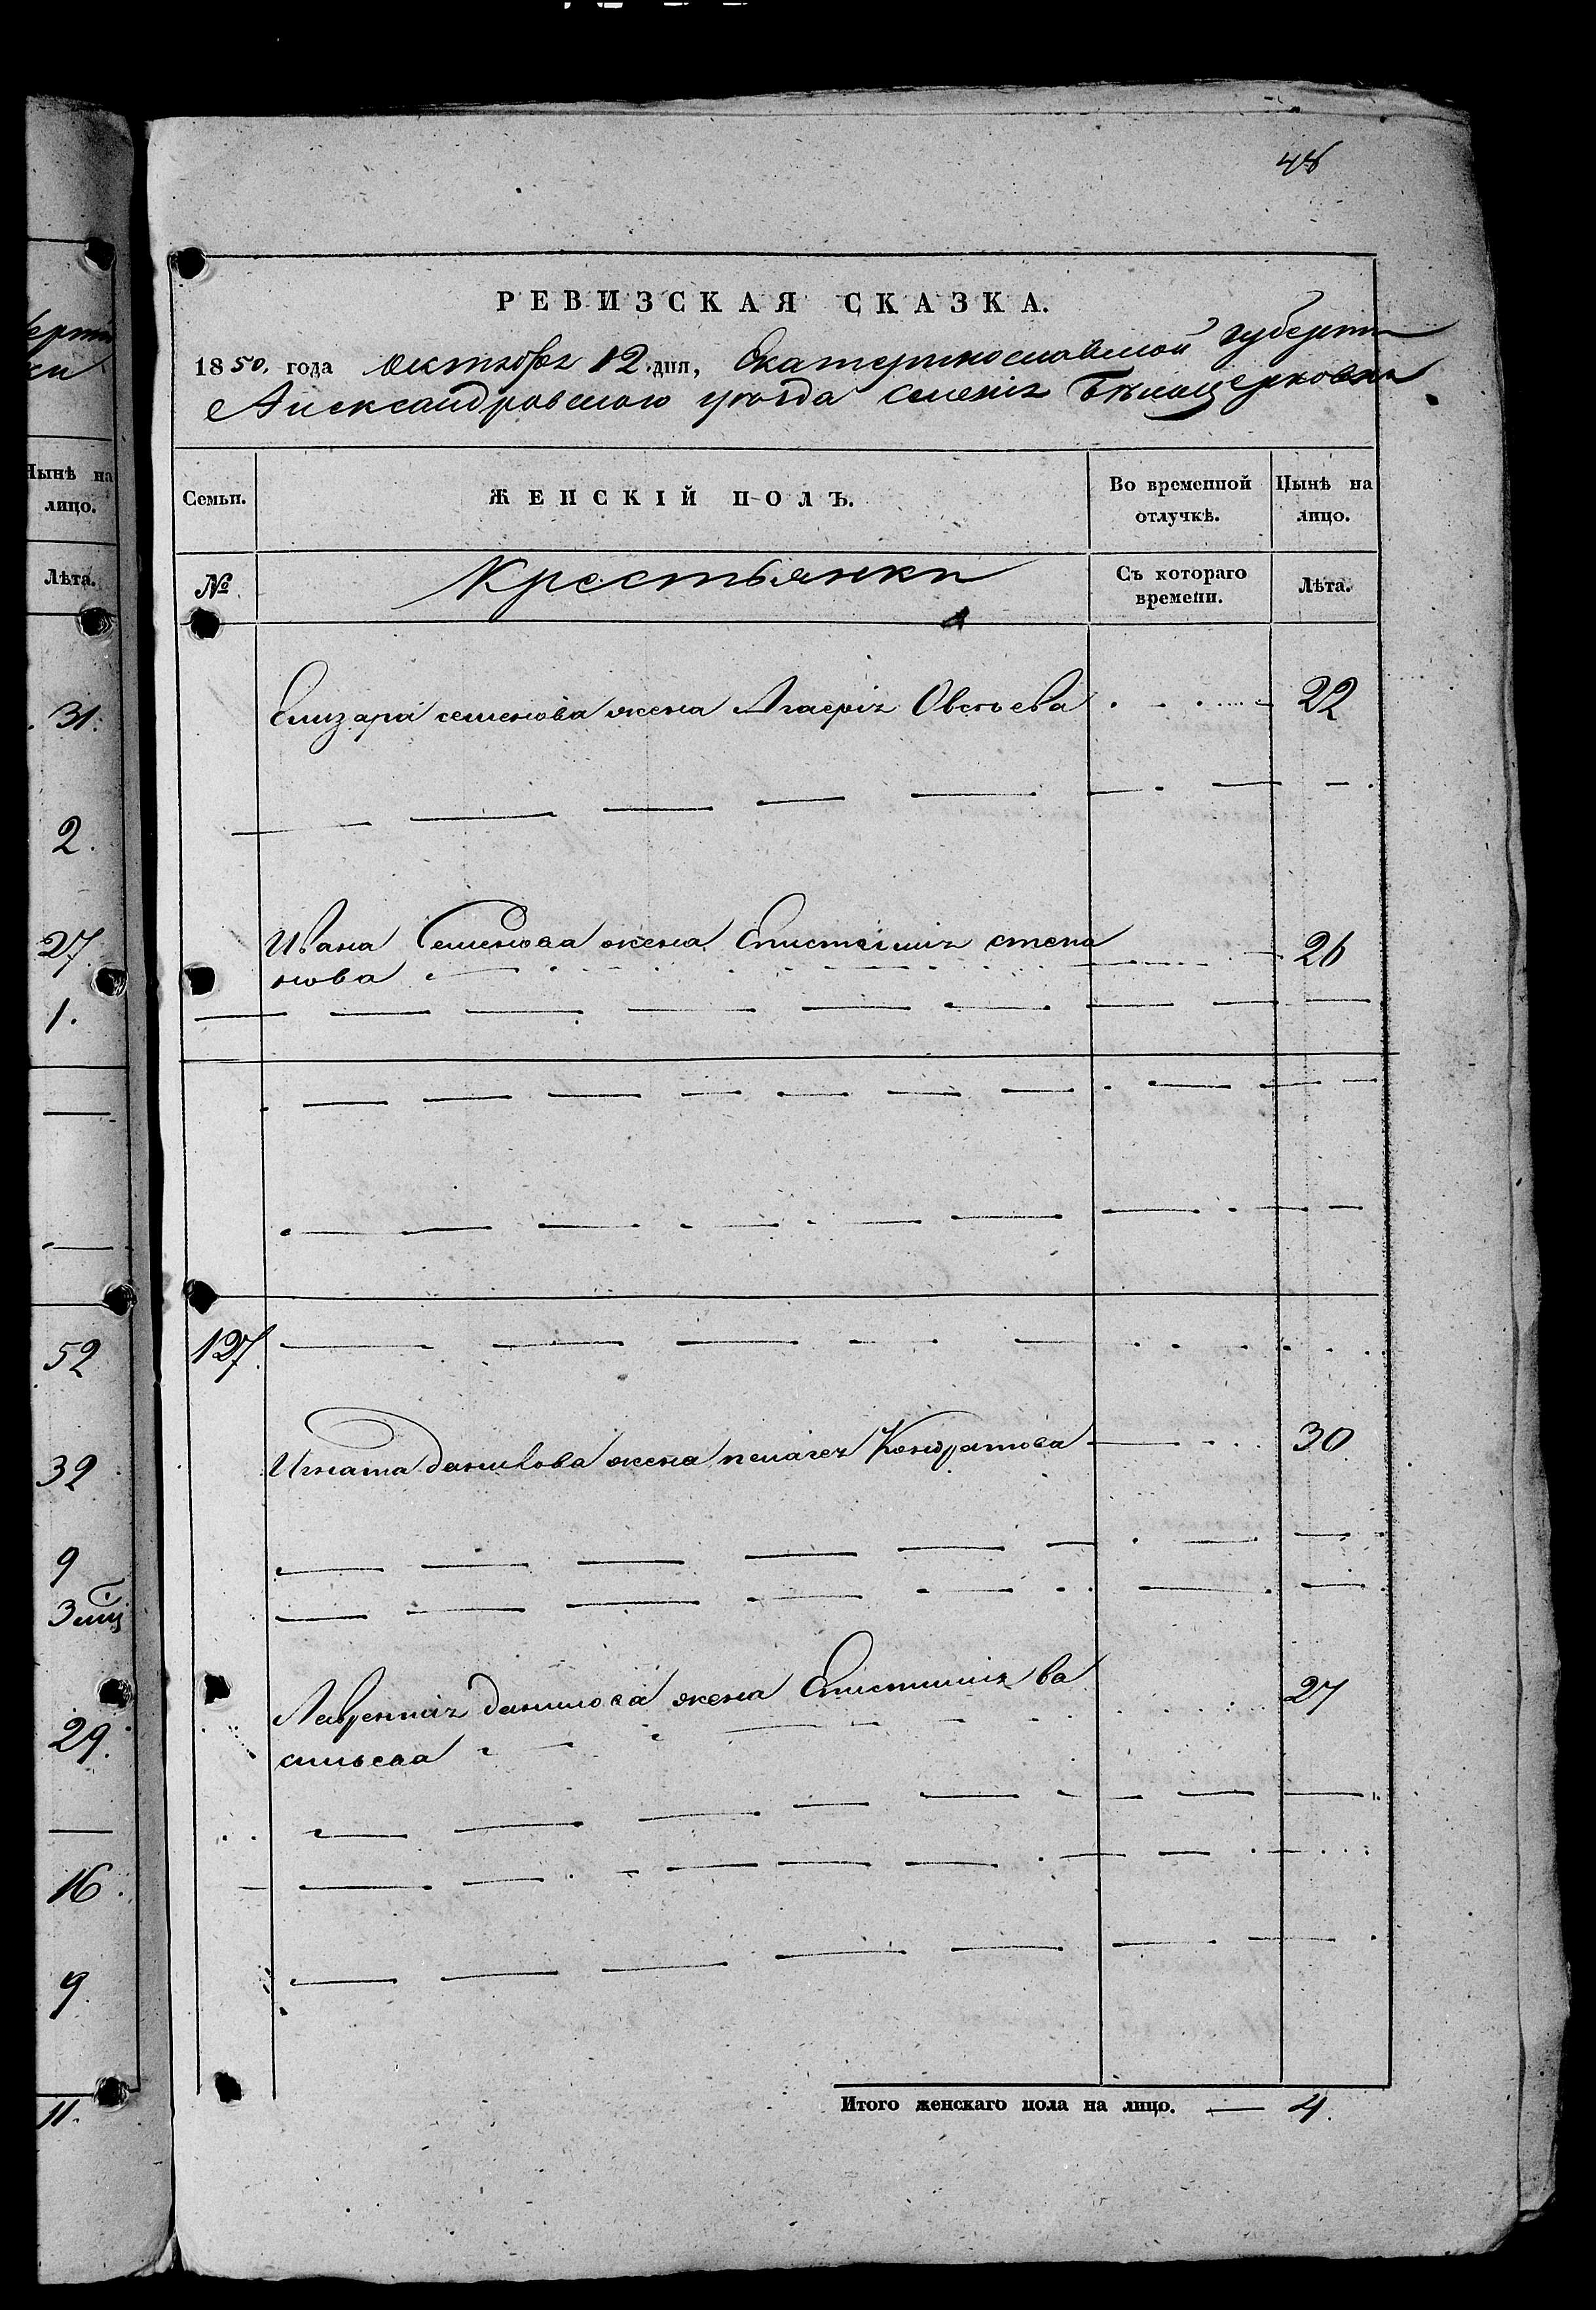 48
РЕВИЗСКАЯ СКАЗКА.
1850. года Октября 12 дня, Екатеринославской губернии
Александровского уезда селенія Бѣлоцерковки
Семьи. ЖЕНСКІЙ ПОЛЪ. Во временной отлучкѣ. Нынѣ на лицо.
№ Крестьянки Съ котораго времени. Лѣта.
Елизара семенова жена Агаерія Овсѣева 22
Ивана Семенова жена Епистимія степа 26
нова
127.
Игната данилова жена пелагея Кондратова 30
Лаврентія данилова жена Епистимия ва 27
сильева
Итого женскаго пола на лицо. 4.
ерни
ки
Нынѣ на
лицо.
Лѣта.
31.
2.
27.
1.
52
32
9
3 мц
29.
16.
9.
11.